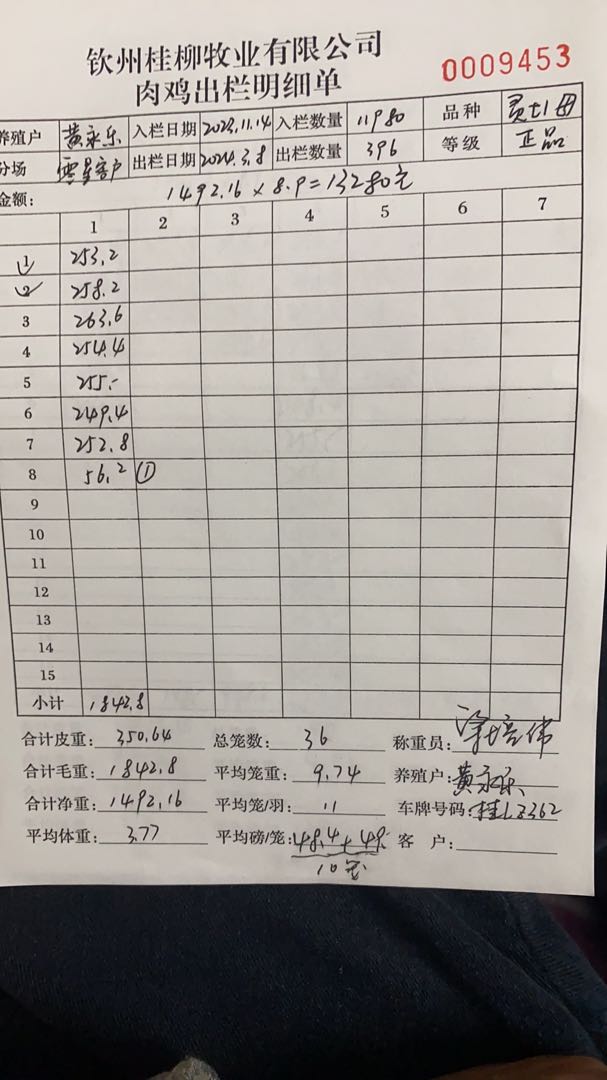 钦州桂柳牧业有限公司
0009453
肉鸡出栏明细单
养殖户 黄永乐 入栏日期 2023.11.14 入栏数量 11980 品种 土1母
分场 客户 出栏日期 2024.3.8 出栏数量 396 等级 正品
金额: 1492.16 × 8.9 = 13280元
1 2 3 4 5 6 7
1 253.2
2 258.2
3 263.6
4 254.4
5 255.-
6 249.4
7 252.8
8 56.2 ①
9
10
11
12
13
14
15
小计 1842.8
合计皮重: 350.64 总笼数: 36 称重员: 培伟
合计毛重: 1842.8 平均笼重: 9.74 养殖户: 黄永乐
合计净重: 1492.16 平均笼/羽: 11 车牌号码: 桂L2362
平均体重: 3.77 平均磅/笼: 48.4 + 49. 客 户:
10笼